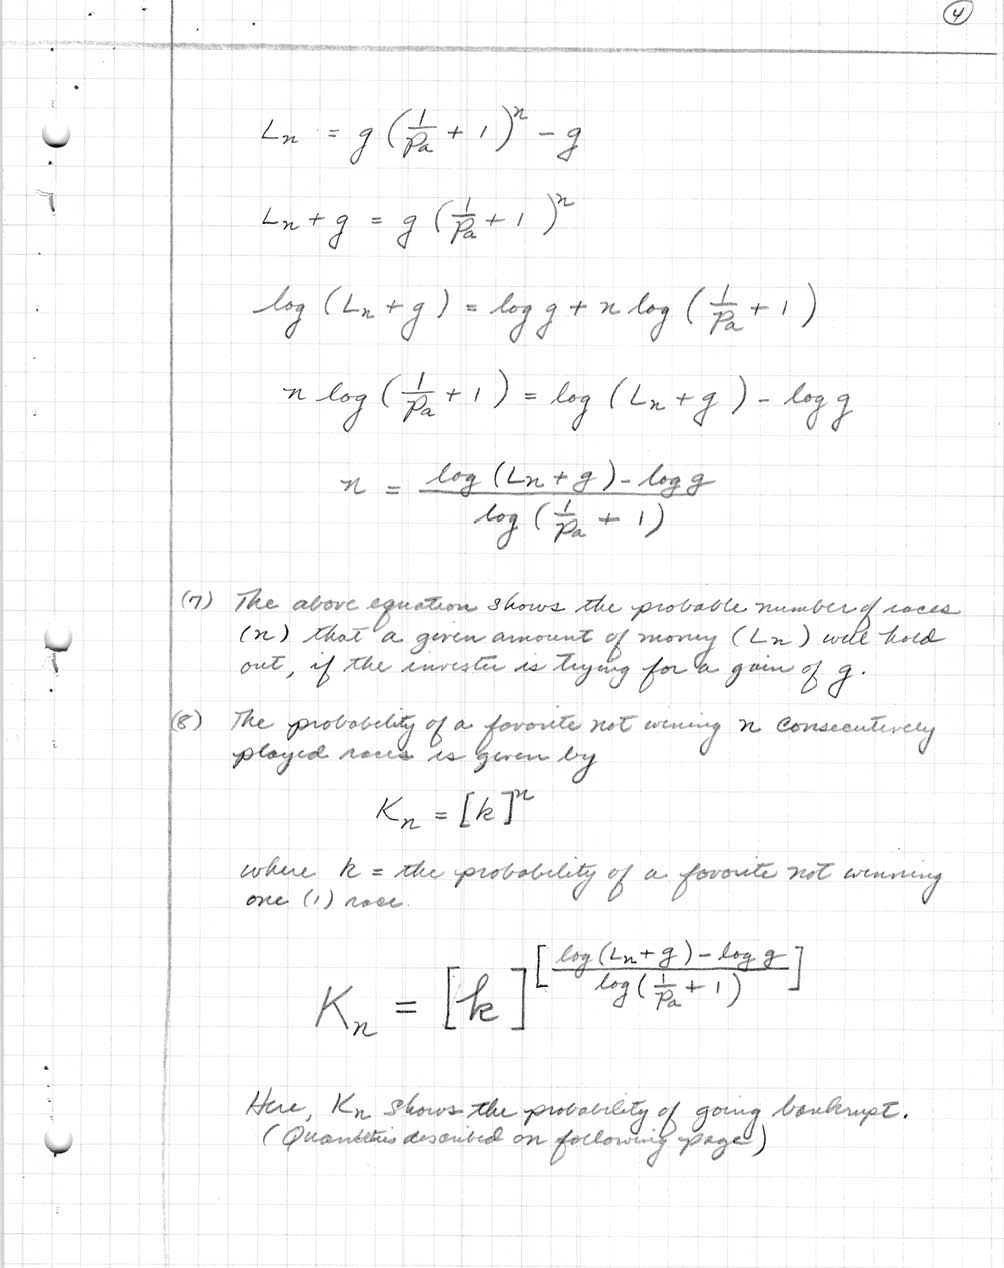 4
Lₙ = g (1/Pₐ + 1)ⁿ - g
Lₙ + g = g (1/Pₐ + 1)ⁿ
log (Lₙ + g) = log g + n log (1/Pₐ + 1)
n log (1/Pₐ + 1) = log (Lₙ + g) - log g
n = (log (Lₙ + g) - log g) / (log (1/Pₐ + 1))
(7) The above equation shows the probable number of races
(n) that a given amount of money (Lₙ) will hold
out, if the invester is trying for a gain of g.
(8) The probability of a favorite not wining n consecutively
played races is given by
Kₙ = [k]ⁿ
where k = the probability of a favorite not winning
one (1) race.
Kₙ = [k]^[(log (Lₙ + g) - log g) / (log (1/Pₐ + 1))]
Here, Kₙ shows the probability of going bankrupt.
(Quantities described on following page)